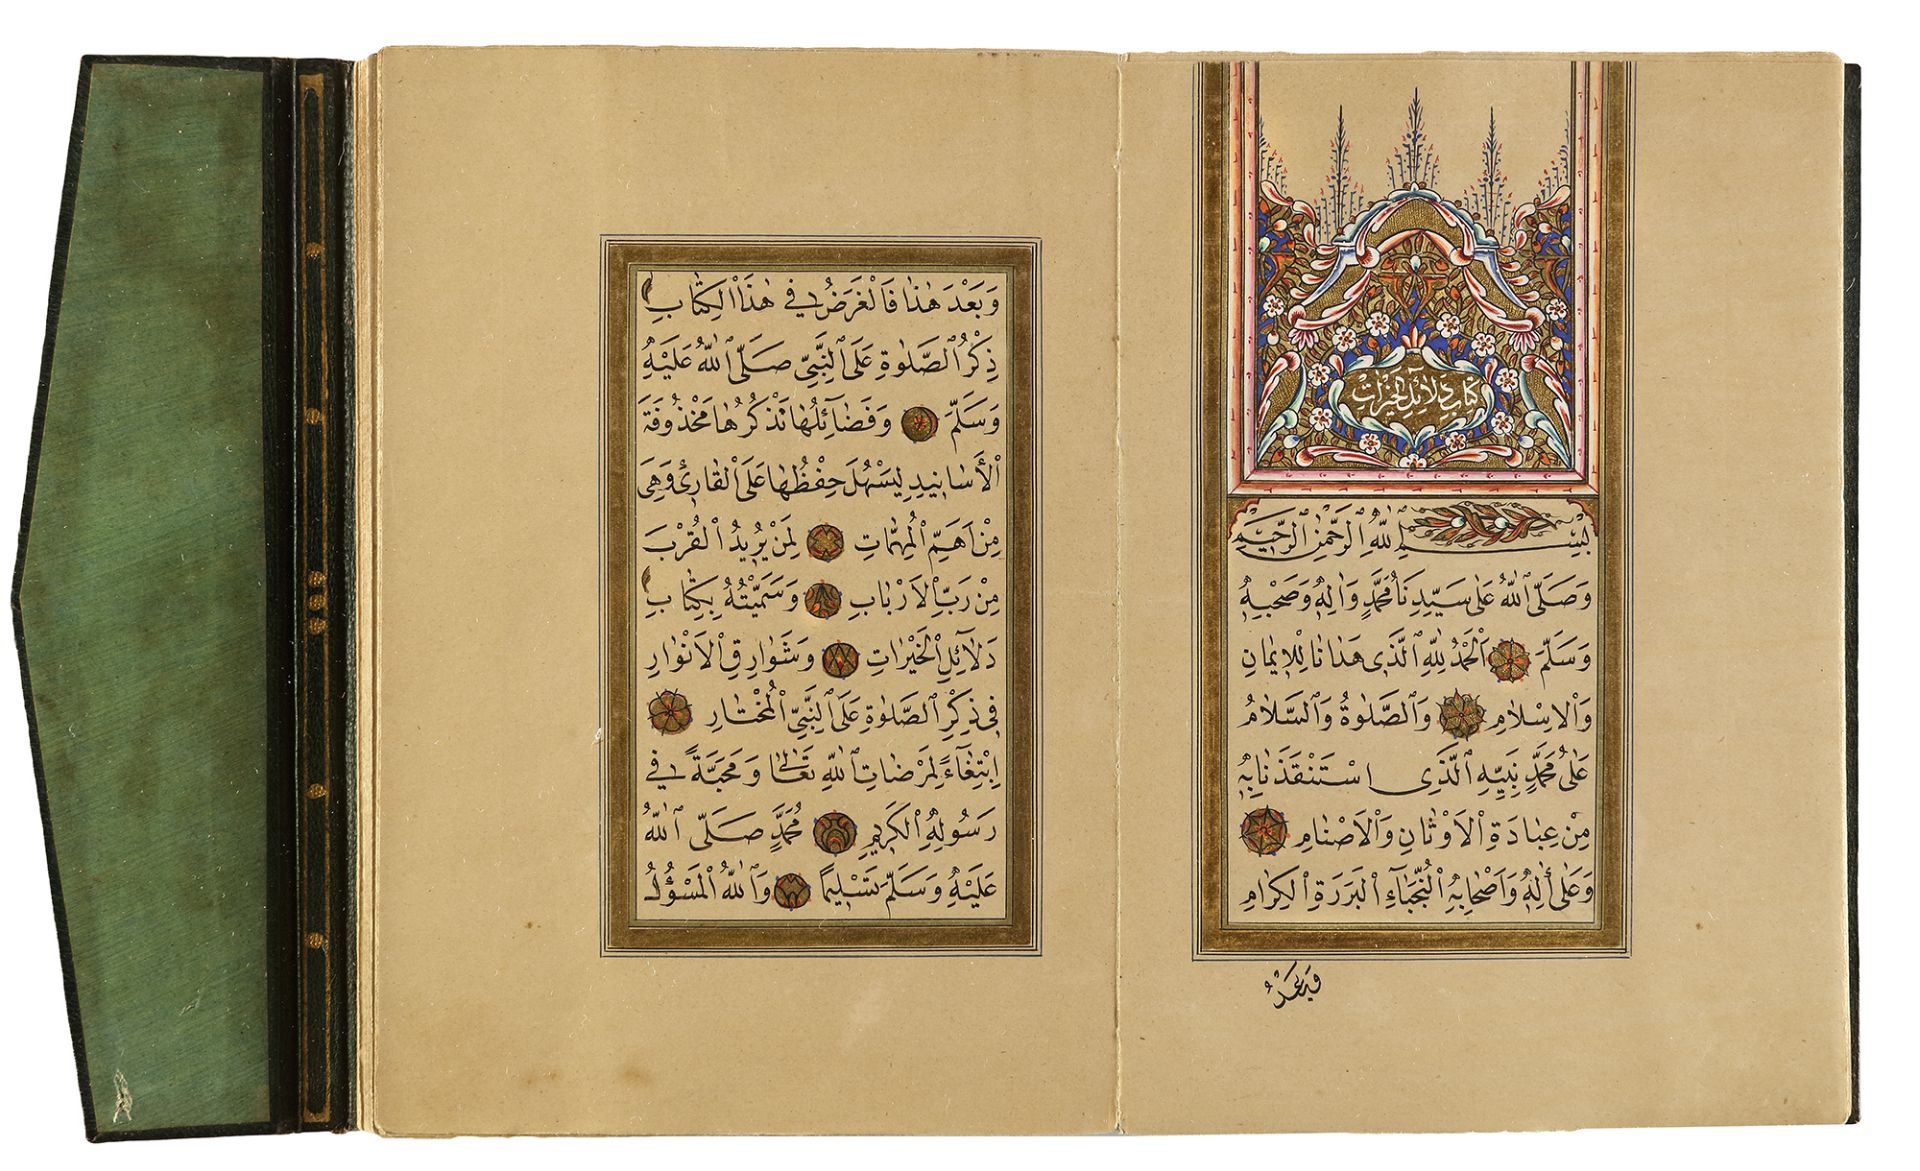 كتاب دلائل الخيرات
بِسْمِ اللهِ الرَّحْمٰنِ الرَّحِيمِ
وَصَلَّى اللهُ عَلٰى سَيِّدِنَا مُحَمَّدٍ وَاٰلِهٖ وَصَحْبِهٖ
وَسَلَّمَ اَلْحَمْدُ لِلهِ الَّذٖى هَدَانَا لِلْاِيمَانِ
وَالْاِسْلَامِ وَالصَّلٰوةُ وَالسَّلَامُ
عَلٰى مُحَمَّدٍ نَبِيِّهِ الَّذٖى اسْتَنْقَذَنَا بِهٖ
مِنْ عِبَادَةِ الْاَوْثَانِ وَالْاَصْنَامِ
وَعَلٰى اٰلِهٖ وَاَصْحَابِهِ النُّجَبَاءِ الْبَرَرَةِ الْكِرَامِ
وَبَعْدُ
وَبَعْدَ هٰذَا فَالْغَرَضُ فِي هٰذَا الْكِتَابِ
ذِكْرُ الصَّلٰوةِ عَلَى النَّبِيِّ صَلَّى اللهُ عَلَيْهِ
وَسَلَّمَ وَفَضَائِلُهَا نَذْكُرُهَا مَحْذُوفَةَ
الْأَسَانِيدِ لِيَسْهُلَ حِفْظُهَا عَلَى الْقَارِئِ وَهِىَ
مِنْ اَهَمِّ الْمُهِمَّاتِ لِمَنْ يُرِيدُ الْقُرْبَ
مِنْ رَبِّ الْاَرْبَابِ وَسَمَّيْتُهُ بِكِتَابِ
دَلَائِلِ الْخَيْرَاتِ وَشَوَارِقِ الْاَنْوَارِ
فِى ذِكْرِ الصَّلٰوةِ عَلَى النَّبِيِّ الْمُخْتَارِ
اِبْتِغَاءً لِمَرْضَاتِ اللهِ تَعَالٰى وَمَحَبَّةً فِي
رَسُولِهِ الْكَرِيمِ مُحَمَّدٍ صَلَّى اللهُ
عَلَيْهِ وَسَلَّمَ تَسْلِيمًا وَاللهُ الْمَسْؤُلُ